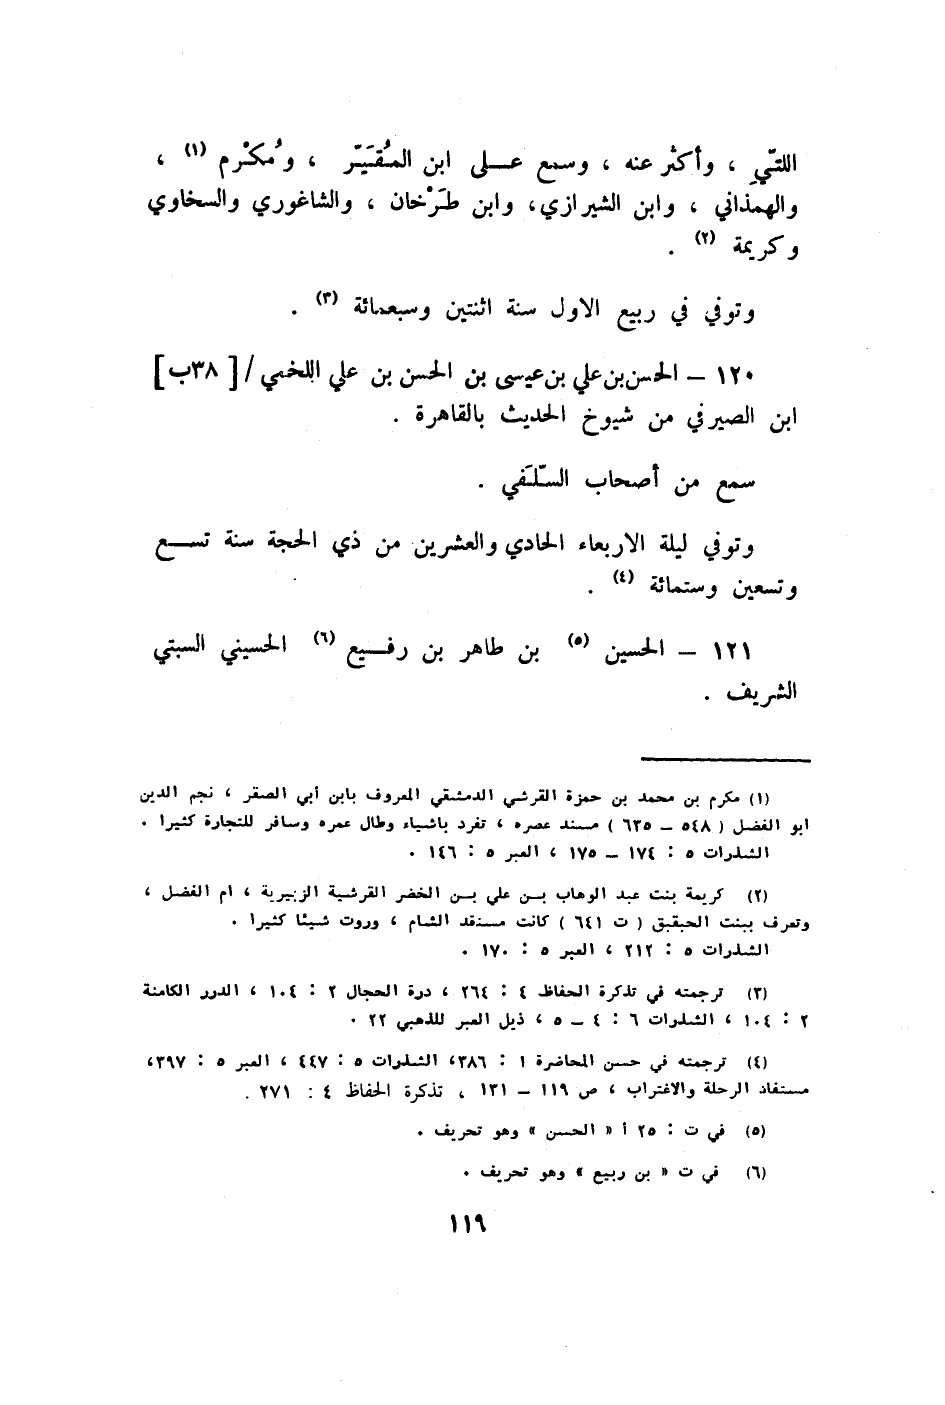 اللتّيِ ، وأكثر عنه ، وسمع عـلى ابن المُقَيَّر ، ومُكْرم (١) ،
والهمذاني ، وابن الشيرازي، وابن طَرْخان ، والشاغوري والسخاوي
وكريمة (٢) .
وتوفي في ربيع الاول سنة اثنتين وسبعمائة (٣) .
١٢٠ – الحسن بن علي بن عيسى بن الحسن بن علي اللخمي / [ ٣٨ب]
ابن الصيرفي من شيوخ الحديث بالقاهرة .
سمع من أصحاب السِّلَفي .
وتوفي ليلة الاربعاء الحادي والعشرين من ذي الحجة سنة تسـع
وتسعين وستمائة (٤) .
١٢١ – الحسين (٥) بن طاهر بن رفـيع (٦) الحسيني السبتي
الشريف .
(١) مكرم بن محمد بن حمزة القرشي الدمشقي المعروف بابن أبي الصقر ، نجم الدين
ابو الفضل ( ٥٤٨ – ٦٣٥ ) مسند عصره ، تفرد باشياء وطال عمره وسافر للتجارة كثيرا .
الشذرات ٥ : ١٧٤ – ١٧٥ ، العبر ٥ : ١٤٦ .
(٢) كريمة بنت عبد الوهاب بـن علي بـن الخضر القرشية الزبيرية ، ام الفضل ،
وتعرف ببنت الحبقبق ( ت ٦٤١ ) كانت مسنقد الشام ، وروت شيئا كثيرا .
الشذرات ٥ : ٢١٢ ، العبر ٥ : ١٧٠ .
(٣) ترجمته في تذكرة الحفاظ ٤ : ٢٦٤ ، درة الحجال ٢ : ١٠٤ ، الدرر الكامنة
٢ : ١٠٤ ، الشذرات ٦ : ٤ – ٥ ، ذيل العبر للذهبي ٢٢ .
(٤) ترجمته في حسن المحاضرة ١ : ٣٨٦، الشذرات ٥ : ٤٤٧ ، العبر ٥ : ٣٩٧،
مستفاد الرحلة والاغتراب ، ص ١١٩ – ١٢١ ، تذكرة الحفاظ ٤ : ٢٧١ .
(٥) في ت : ٢٥ أ « الحسن » وهو تحريف .
(٦) في ت « بن ربيع » وهو تحريف .
١١٩